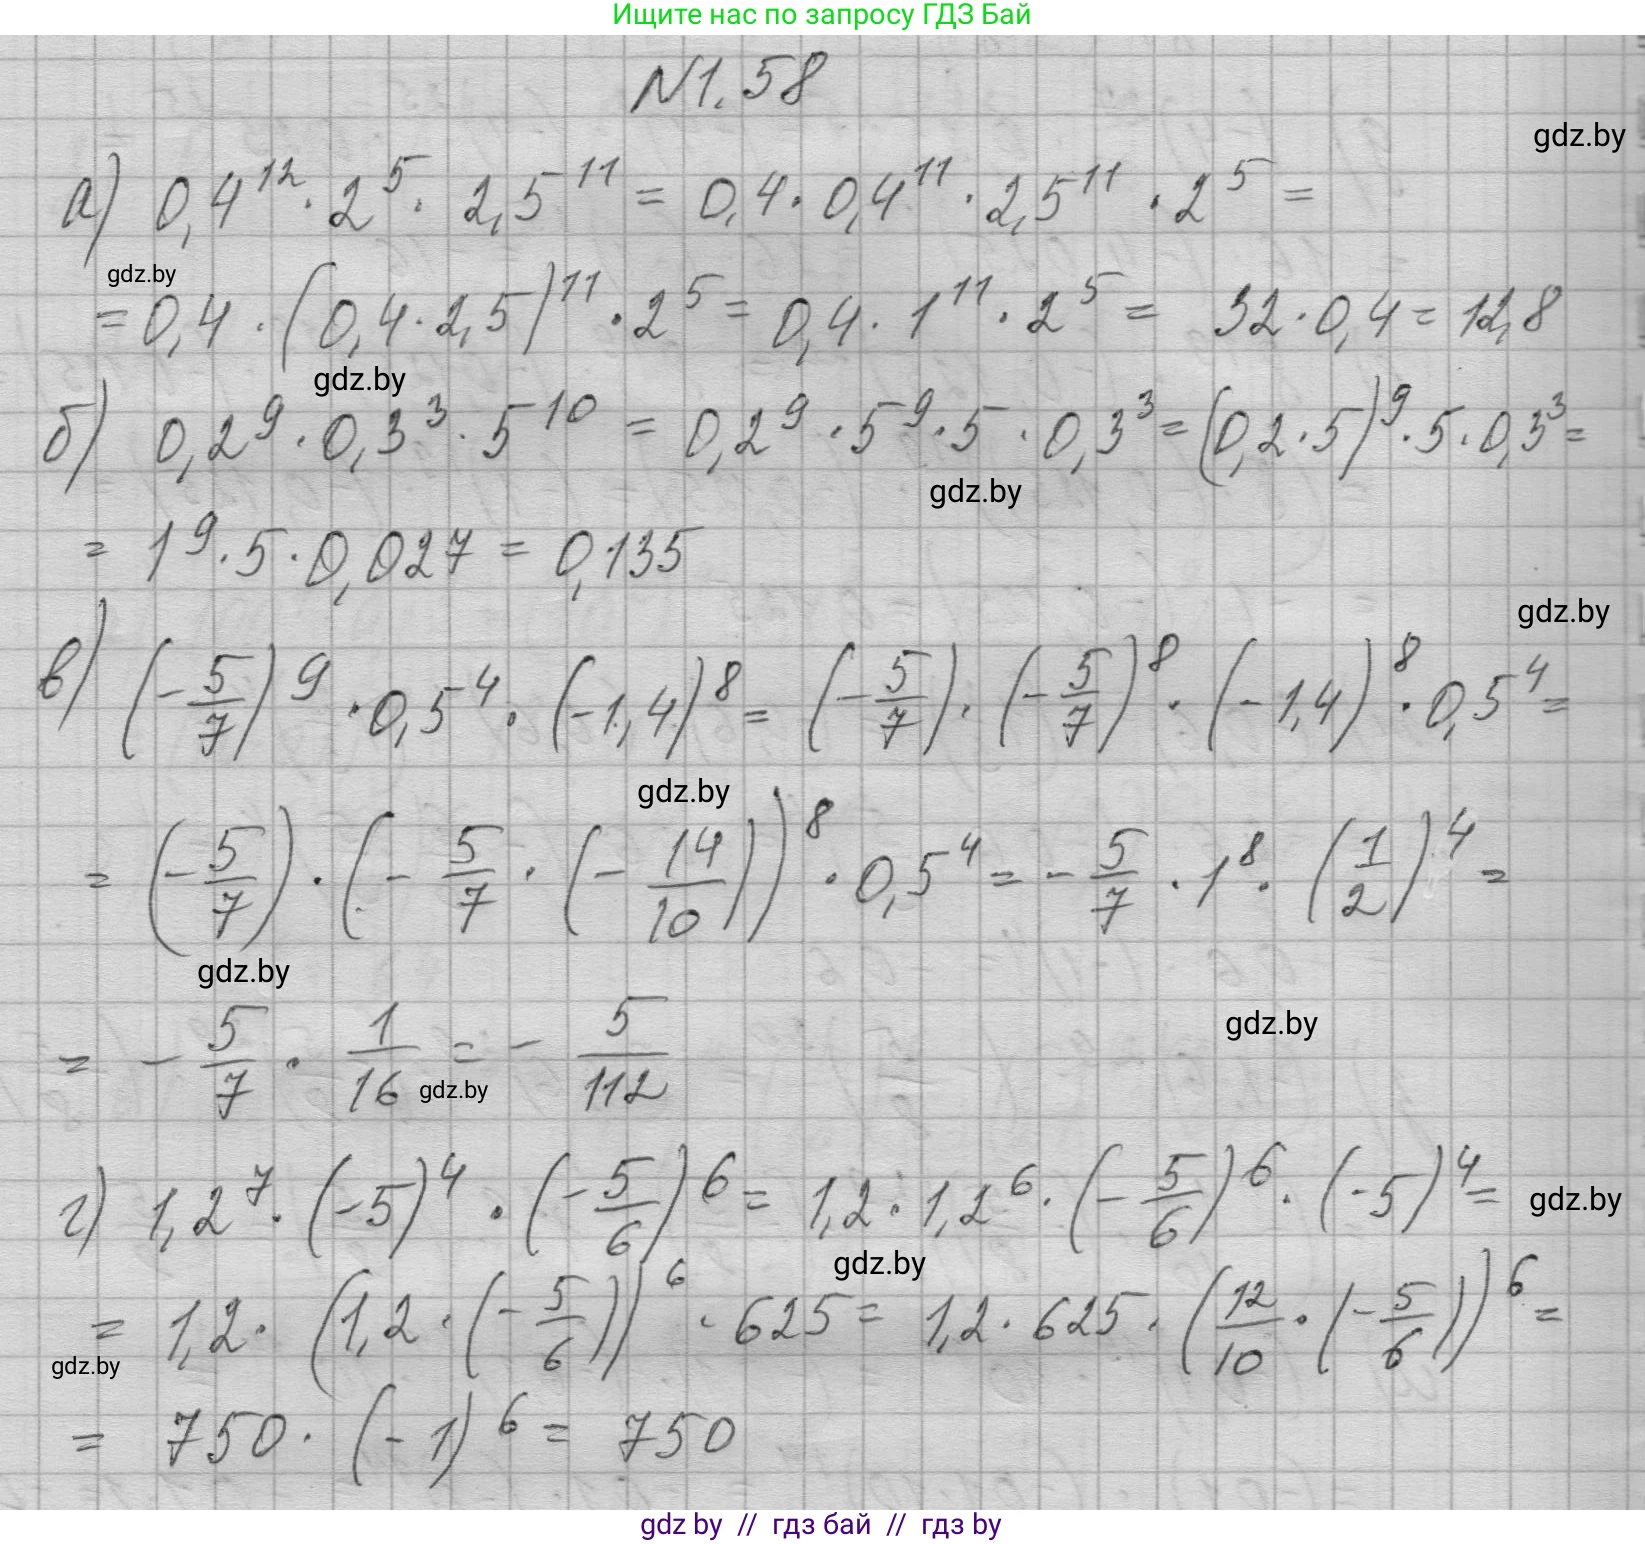 Ищите нас по запросу ГДЗ Бай
№1.58
gdz.by
а) 0,4¹² · 2⁵ · 2,5¹¹ = 0,4 · 0,4¹¹ · 2,5¹¹ · 2⁵ =
gdz.by
= 0,4 · (0,4 · 2,5)¹¹ · 2⁵ = 0,4 · 1¹¹ · 2⁵ = 32 · 0,4 = 12,8
gdz.by
б) 0,2⁹ · 0,3³ · 5¹⁰ = 0,2⁹ · 5⁹ · 5 · 0,3³ = (0,2 · 5)⁹ · 5 · 0,3³ =
gdz.by
= 1⁹ · 5 · 0,027 = 0,135
gdz.by
в) (-5/7)⁹ · 0,5⁴ · (-1,4)⁸ = (-5/7) · (-5/7)⁸ · (-1,4)⁸ · 0,5⁴ =
gdz.by
= (-5/7) · (-5/7 · (-14/10))⁸ · 0,5⁴ = -5/7 · 1⁸ · (1/2)⁴ =
gdz.by
gdz.by
= -5/7 · 1/16 = -5/112
gdz.by
г) 1,2⁷ · (-5)⁴ · (-5/6)⁶ = 1,2 · 1,2⁶ · (-5/6)⁶ · (-5)⁴ =
gdz.by
gdz.by
= 1,2 · (1,2 · (-5/6))⁶ · 625 = 1,2 · 625 · (12/10 · (-5/6))⁶ =
gdz.by
= 750 · (-1)⁶ = 750
gdz by // гдз бай // гдз by